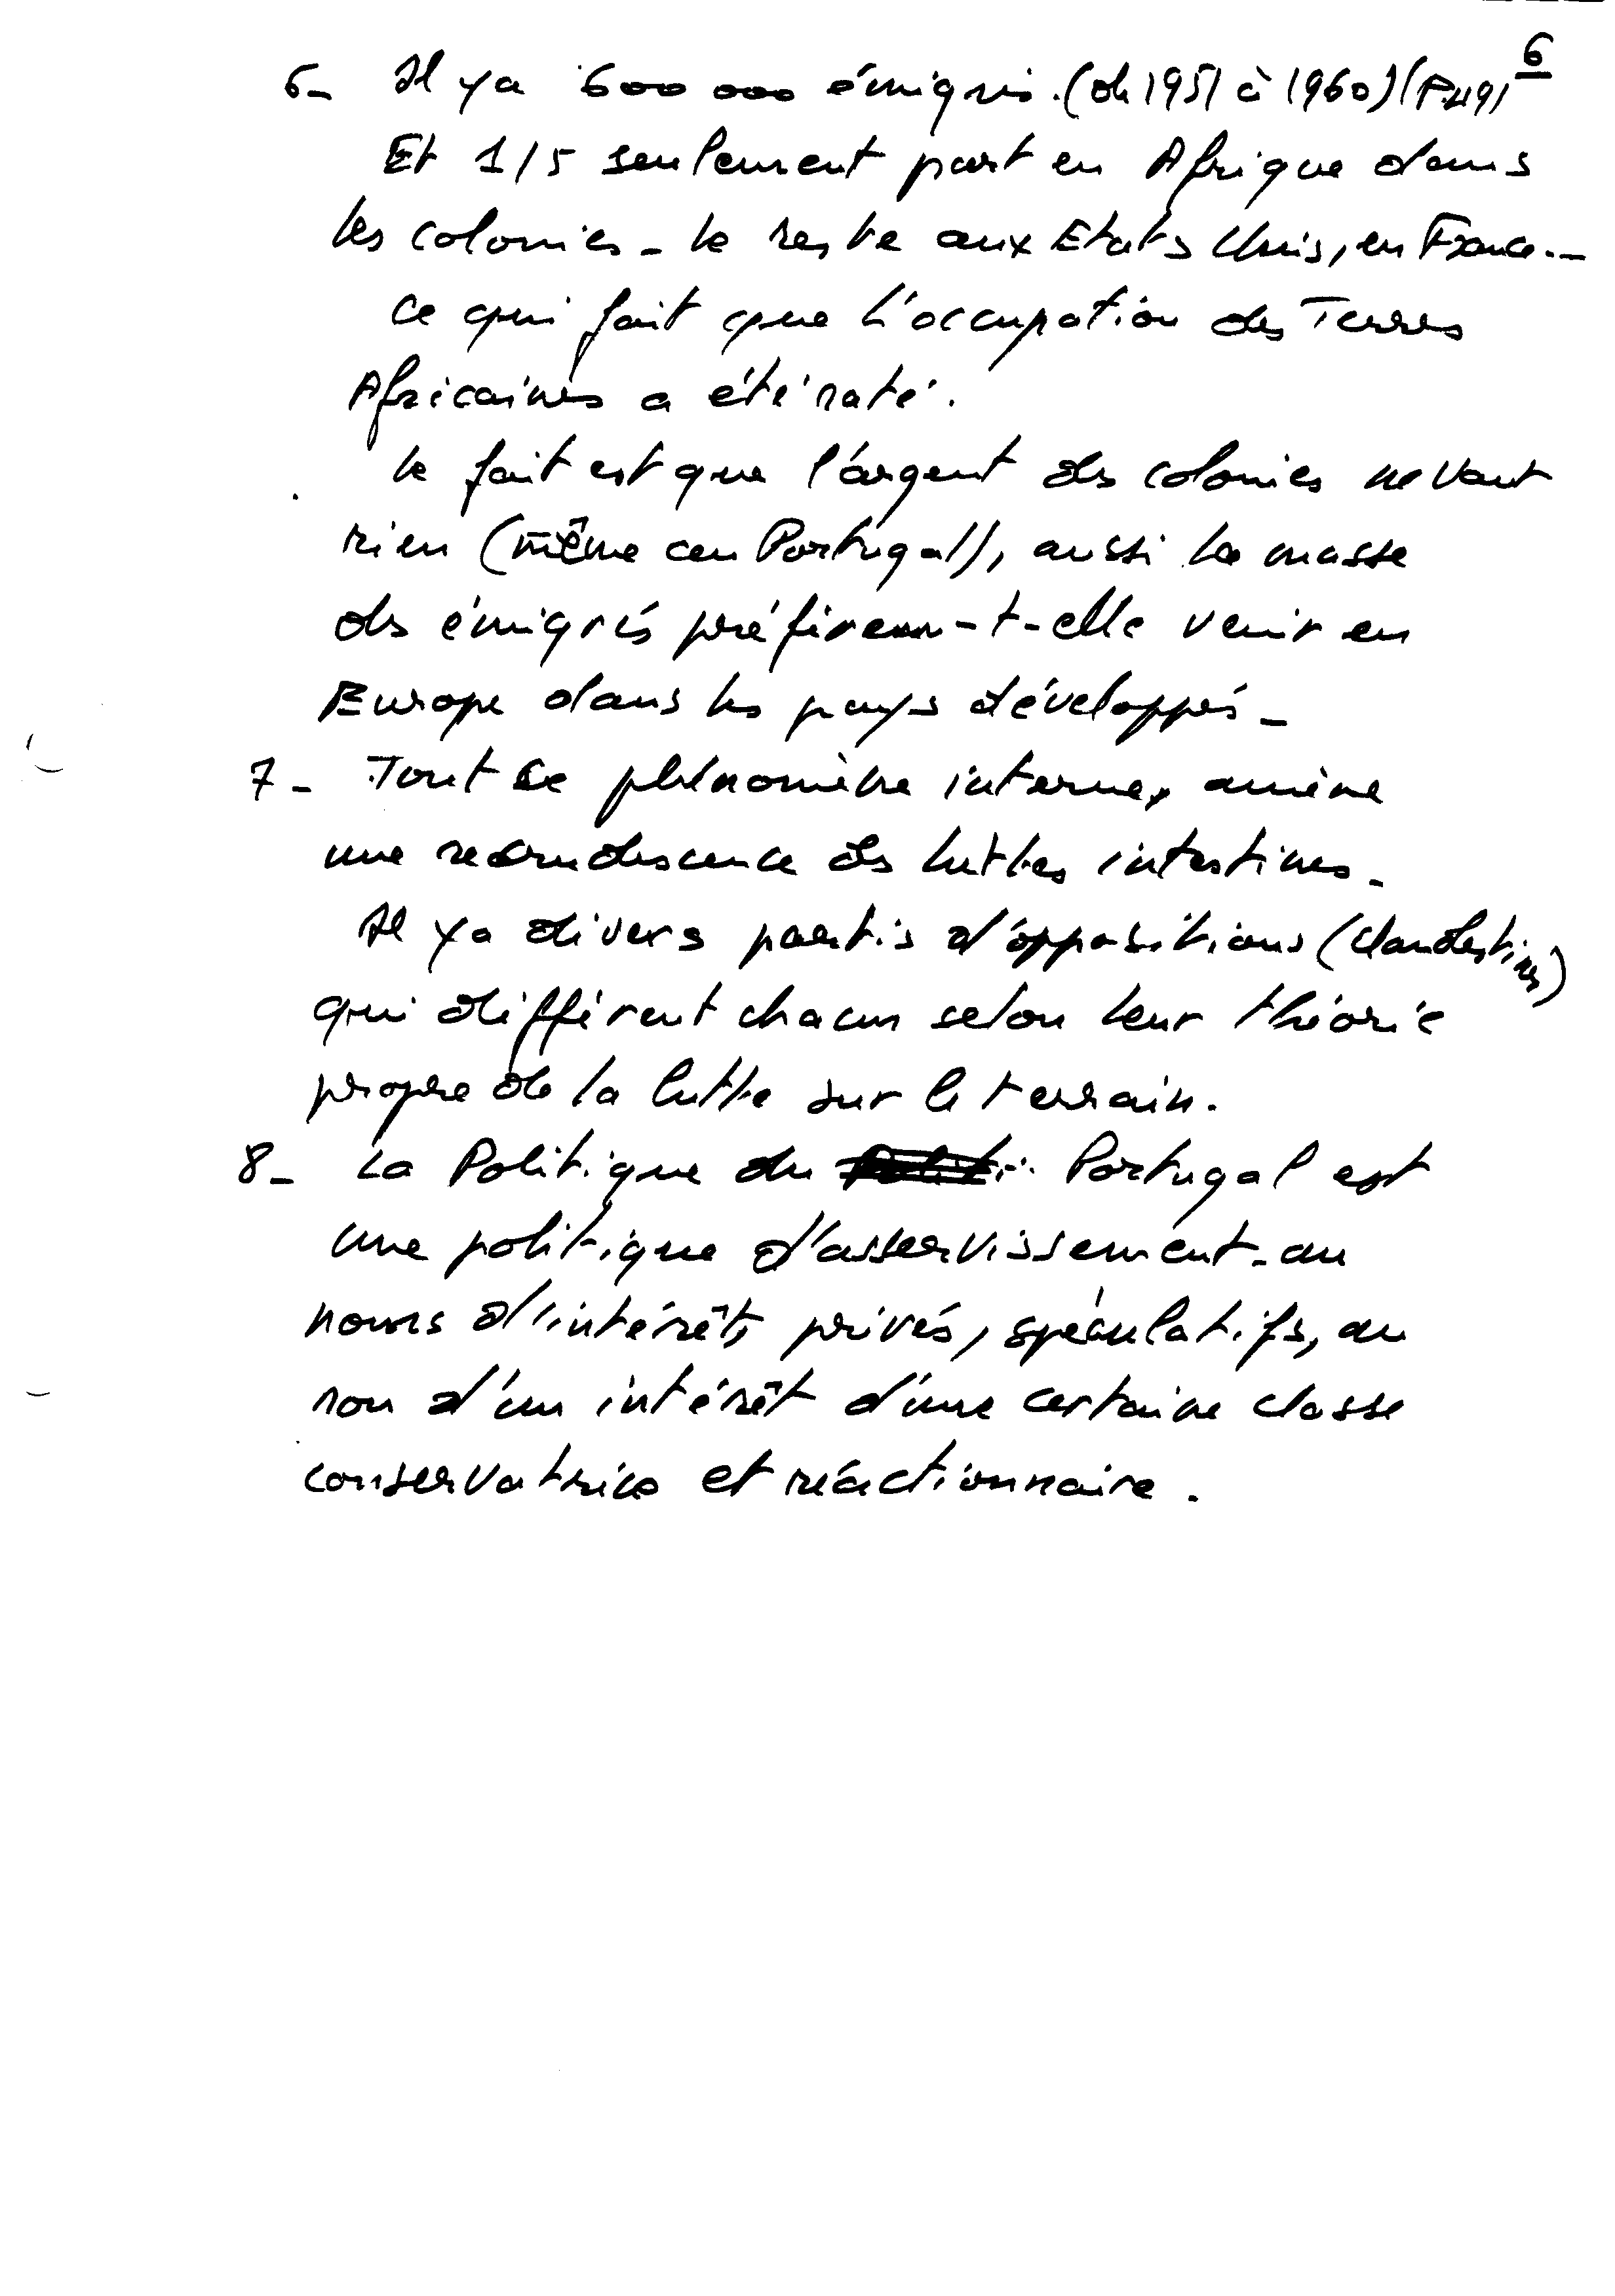 6
6- Il y a 600 000 émigrés. (de 1951 à 1960) (P.49)
Et 1/5 seulement part en Afrique dans
les colonies - le reste aux Etats Unis, en France.-
Ce qui fait que l'occupation des Terres
Africaines a été raté.
Le fait est que l'argent des colonies ne vaut
rien (même au Portugal), aussi la masse
des émigrés préfère-t-elle venir en
Europe dans les pays développés -
7- Tout ce phénomène interne, amène
une recrudescence des luttes intestines.
Il y a divers partis d'oppositions (clandestines)
qui différent chacun selon leur théorie
propre de la lutte sur le terrain.
8- La Politique du Portugal est
une politique d'asservissement - au
noms d'intérêts privés, spéculatifs, au
non d'un intérêt d'une certaine classe
conservatrice et réactionnaire.